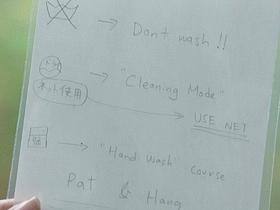 → Don't wash!!
→ "Cleaning Mode"
ネット使用
USE NET
→ "Hand Wash" course
Pat & Hang